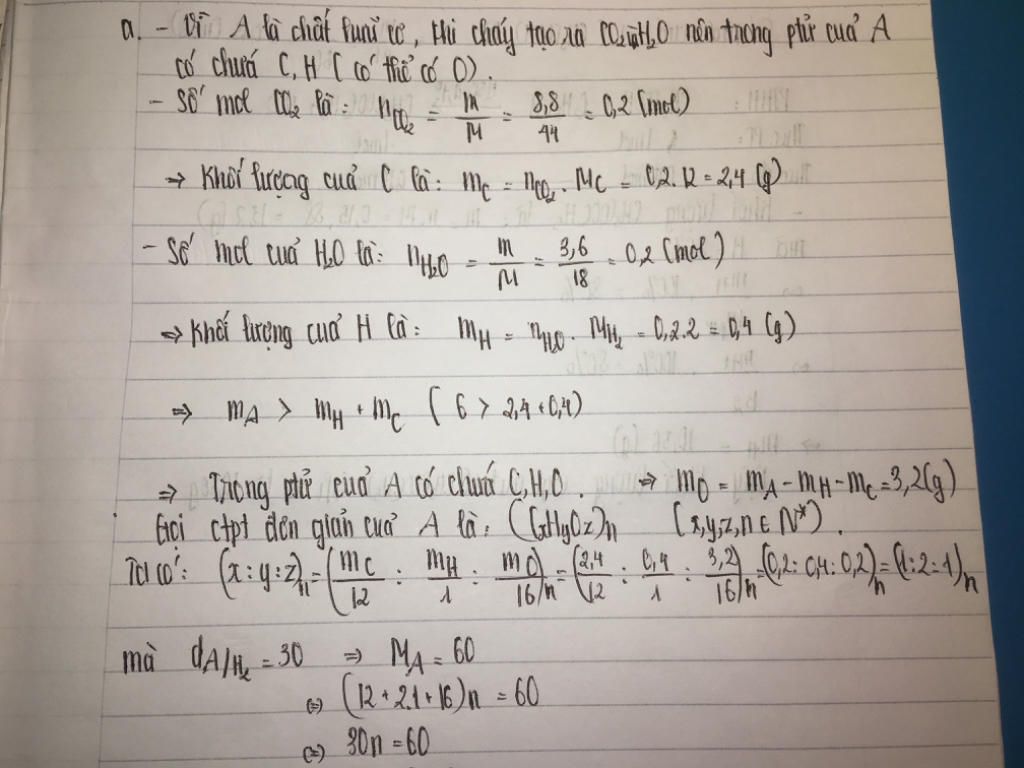 a. - Vì A là chất hữu cơ, khi cháy tạo ra CO2 và H2O nên trong ptử của A
có chứa C, H (có thể có O).
- Số mol CO2 là: nCO2 = m/M = 8,8/44 = 0,2 (mol)
⇒ Khối lượng của C là: mC = nCO2 . MC = 0,2.12 = 2,4 (g)
- Số mol của H2O là: nH2O = m/M = 3,6/18 = 0,2 (mol)
⇒ Khối lượng của H là: mH = nH2O . MH2 = 0,2.2 = 0,4 (g)
⇒ mA > mH + mC (6 > 2,4+0,4)
⇒ Trong ptử của A có chứa C,H,O. ⇒ mO = mA - mH - mC = 3,2(g)
Gọi ctpt đơn giản của A là: (CxHyOz)n (x,y,z,n ∈ N*).
Ta có: (x:y:z)n = (mC/12 : mH/1 : mO/16)n = (2,4/12 : 0,4/1 : 3,2/16)n = (0,2:0,4:0,2)n = (1:2:1)n
mà dA/H2 = 30 ⇒ MA = 60
(=) (12 + 2.1 + 16)n = 60
(=) 30n = 60